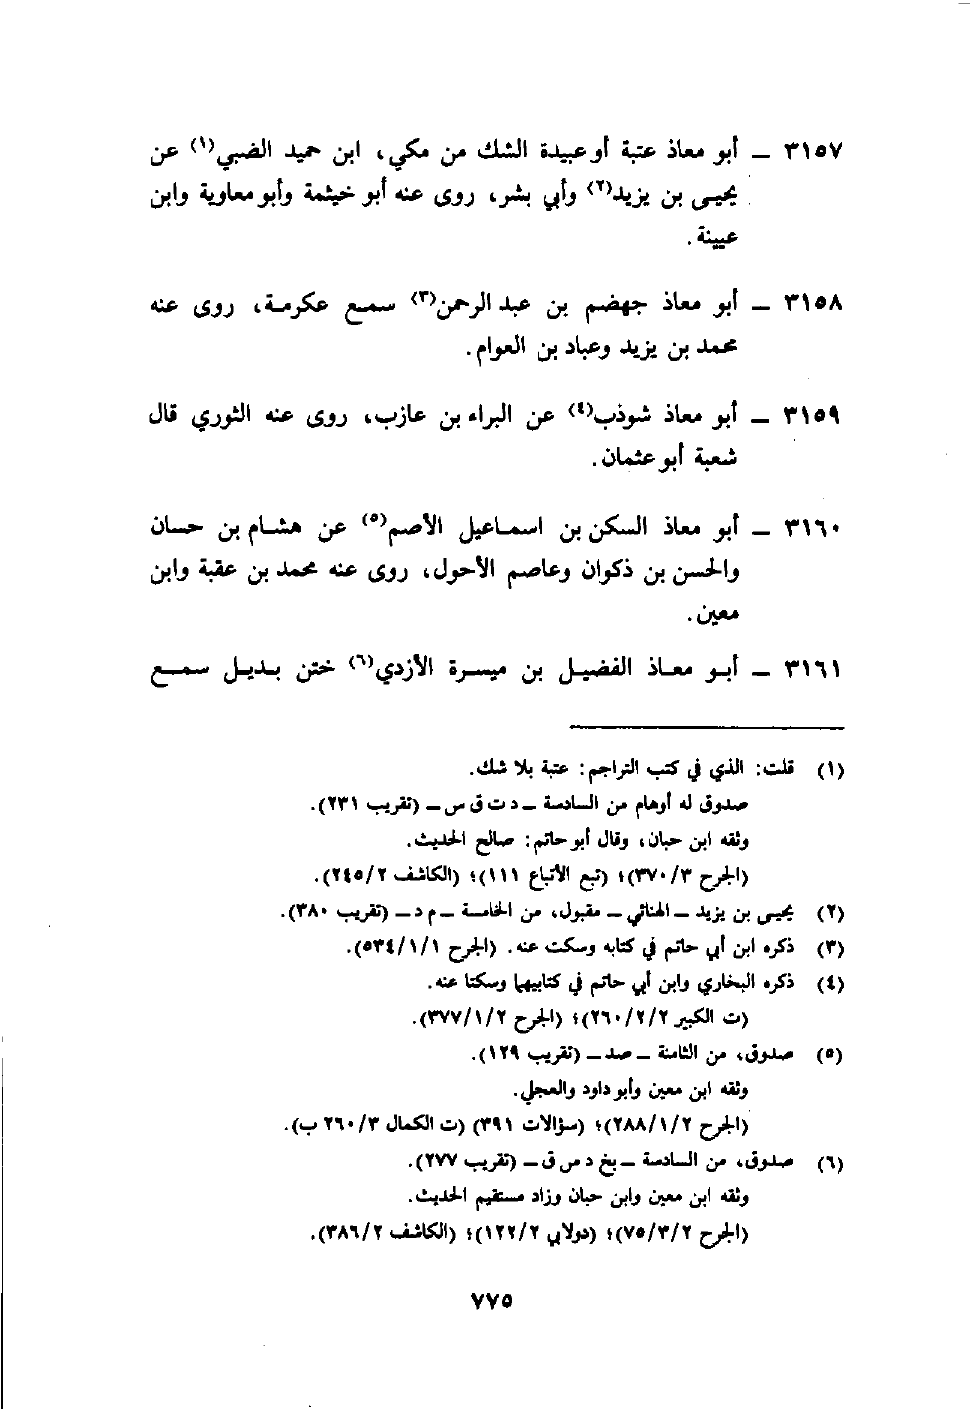 ٣١٥٧ — أبو معاذ عتبة أو عبيدة الشك من مكي، ابن حميد الضبي(١) عن
يحيى بن يزيد(٢) وأبي بشر، روى عنه أبو خيثمة وأبو معاوية وابن
عيينة.
٣١٥٨ — أبو معاذ جهضم بن عبد الرحمن(٣) سمع عكرمة، روى عنه
محمد بن يزيد وعباد بن العوام.
٣١٥٩ — أبو معاذ شوذب(٤) عن البراء بن عازب، روى عنه الثوري قال
شعبة أبو عثمان.
٣١٦٠ — أبو معاذ السكن بن اسماعيل الأصم(٥) عن هشام بن حسان
والحسن بن ذكوان وعاصم الأحول، روى عنه محمد بن عقبة وابن
معين.
٣١٦١ — أبو معاذ الفضيل بن ميسرة الأزدي(٦) ختن بديل سمع
(١) قلت: الذي في كتب التراجم: عتبة بلا شك.
صدوق له أوهام من السادسة — د ت ق س — (تقريب ٢٣١).
وثقه ابن حبان، وقال أبو حاتم: صالح الحديث.
(الجرح ٣/٣٧٠)؛ (تبع الأتباع ١١١)؛ (الكاشف ٢/٢٤٥).
(٢) يحيى بن يزيد — الهنائي — مقبول، من الخامسة — م د — (تقريب ٣٨٠).
(٣) ذكره ابن أبي حاتم في كتابه وسكت عنه. (الجرح ١/١/٥٣٤).
(٤) ذكره البخاري وابن أبي حاتم في كتابيهما وسكتا عنه.
(ت الكبير ٢/٢/٢٦٠)؛ (الجرح ٢/١/٣٧٧).
(٥) صدوق، من الثامنة — صد — (تقريب ١٢٩).
وثقه ابن معين وأبو داود والعجلي.
(الجرح ٢/١/٢٨٨)؛ (سؤالات ٣٩١) (ت الكمال ٣/٢٦٠ ب).
(٦) صدوق، من السادسة — بخ د س ق — (تقريب ٢٧٧).
وثقه ابن معين وابن حبان وزاد مستقيم الحديث.
(الجرح ٢/٣/٧٥)؛ (دولابي ٢/١٢٢)؛ (الكاشف ٢/٣٨٦).
٧٧٥